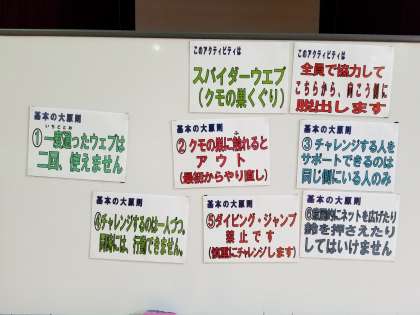 このアクティビティは
スパイダーウエブ
(クモの巣くぐり)
このアクティビティは
全員で協力して
こちらから、向こう側に
脱出します
基本の大原則
いちどとお
①一度通ったウェブは
二回、使えません
基本の大原則
②クモの巣に触れると
アウト
(最初からやり直し)
基本の大原則
③チャレンジする人を
サポートできるのは
同じ側にいる人のみ
基本の大原則
④チャレンジするのは一人づつ。
同時には、行動できません。
基本の大原則
⑤ダイビング・ジャンプ
禁止です
(慎重にチャレンジします)
基本の大原則
⑥意図的にネットを広げたり
鈴を押さえたり
してはいけません